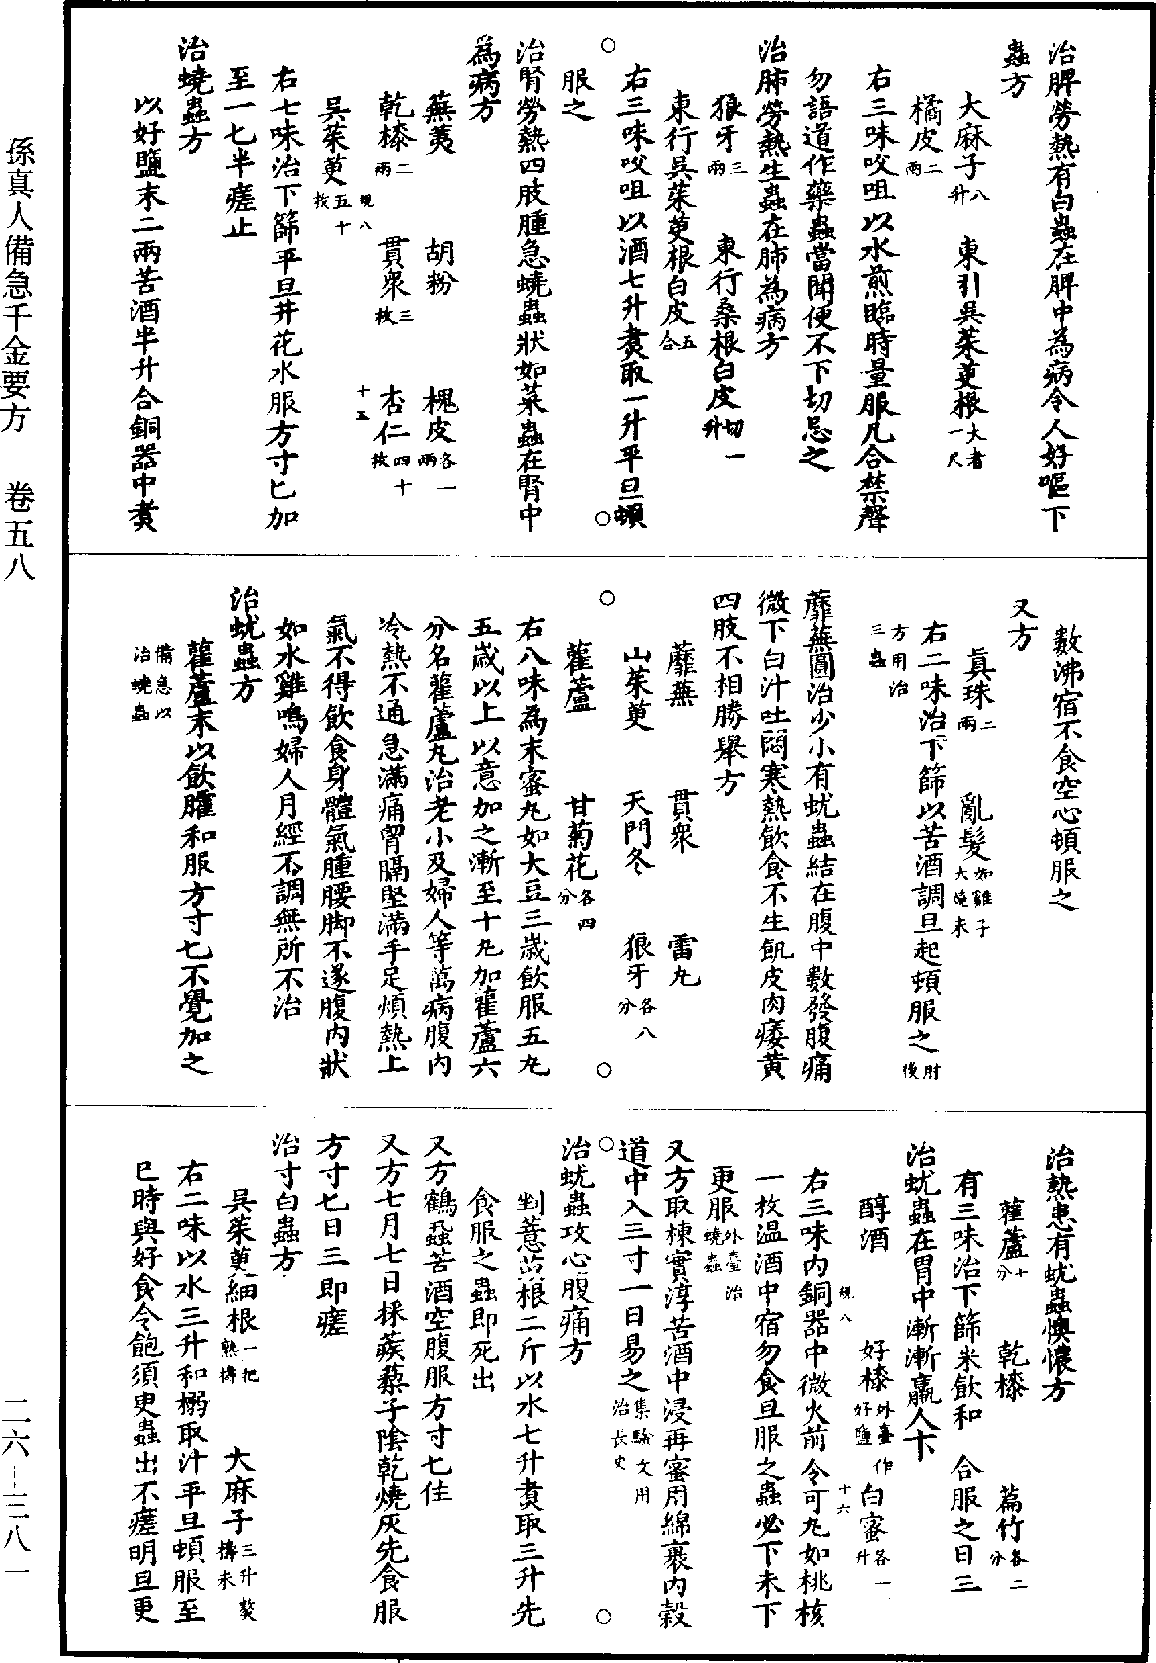 孫真人備急千金要方　卷五八　二六—三八一
治脾勞熱有白蟲在脾中為病令人好嘔下
蟲方
大麻子八升　東引吳茱萸根大者一尺
橘皮二兩
右三味㕮咀以水煎臨時量服凡合禁聲
勿語道作藥蟲當聞便不下切忌之
治肺勞熱生蟲在肺為病方
狼牙三兩　東行桑根白皮切一升
東行吳茱萸根白皮五合
右三味㕮咀以酒七升煑取一升平旦頓
服之
治腎勞熱四肢腫急蟯蟲狀如菜蟲在腎中
為病方
蕪荑　胡粉　槐皮各一兩
乾漆二兩　貫衆三枚　杏仁四十枚
十五
吳茱萸五十枚
規八
右七味治下篩平旦井花水服方寸匕加
至一匕半瘥止
治蟯蟲方
以好鹽末二兩苦酒半升合銅器中煑
數沸宿不食空心頓服之
又方
真珠二兩　亂髮如雞子大燒末
右二味治下篩以苦酒調旦起頓服之肘後
方用治三蟲
蘼蕪圓治少小有蚘蟲結在腹中數發腹痛
微下白汁吐悶寒熱飲食不生飢皮肉痿黃
四肢不相勝舉方
蘼蕪　貫衆　雷丸
山茱萸　天門冬　狼牙各八分
雚蘆　甘菊花各四分
右八味為末蜜丸如大豆三歲飲服五丸
五歲以上以意加之漸至十丸加雚蘆六
分名雚蘆丸治老小及婦人等萬病腹內
冷熱不通急滿痛胷膈堅滿手足煩熱上
氣不得飲食身體氣腫腰脚不遂腹內狀
如水雞鳴婦人月經不調無所不治
治蚘蟲方
雚蘆末以飲臛和服方寸匕不覺加之
備急以治蟯蟲
治熱患有蚘蟲懊憹方
雚蘆十分　乾漆　萹竹各二分
有三味治下篩米飲和　合服之日三
治蚘蟲在胃中漸漸羸人下
醇酒　好漆外臺作好鹽　白蜜各一升
規八
十六
右三味內銅器中微火煎令可丸如桃核
一枚温酒中宿勿食旦服之蟲必下未下
更服外臺治蟯蟲
又方取楝實淳苦酒中浸再蜜用綿裹內穀
道中入三寸一日易之集驗文用治長史
治蚘蟲攻心腹痛方
剉薏苡根二斤以水七升煑取三升先
食服之蟲即死出
又方鶴虱苦酒空腹服方寸匕佳
又方七月七日採蒺藜子陰乾燒灰先食服
方寸匕日三即瘥
治寸白蟲方
吳茱萸細根一把熟擣　大麻子三升熬擣末
右二味以水三升和搦取汁平旦頓服至
巳時與好食令飽須臾蟲出不瘥明旦更